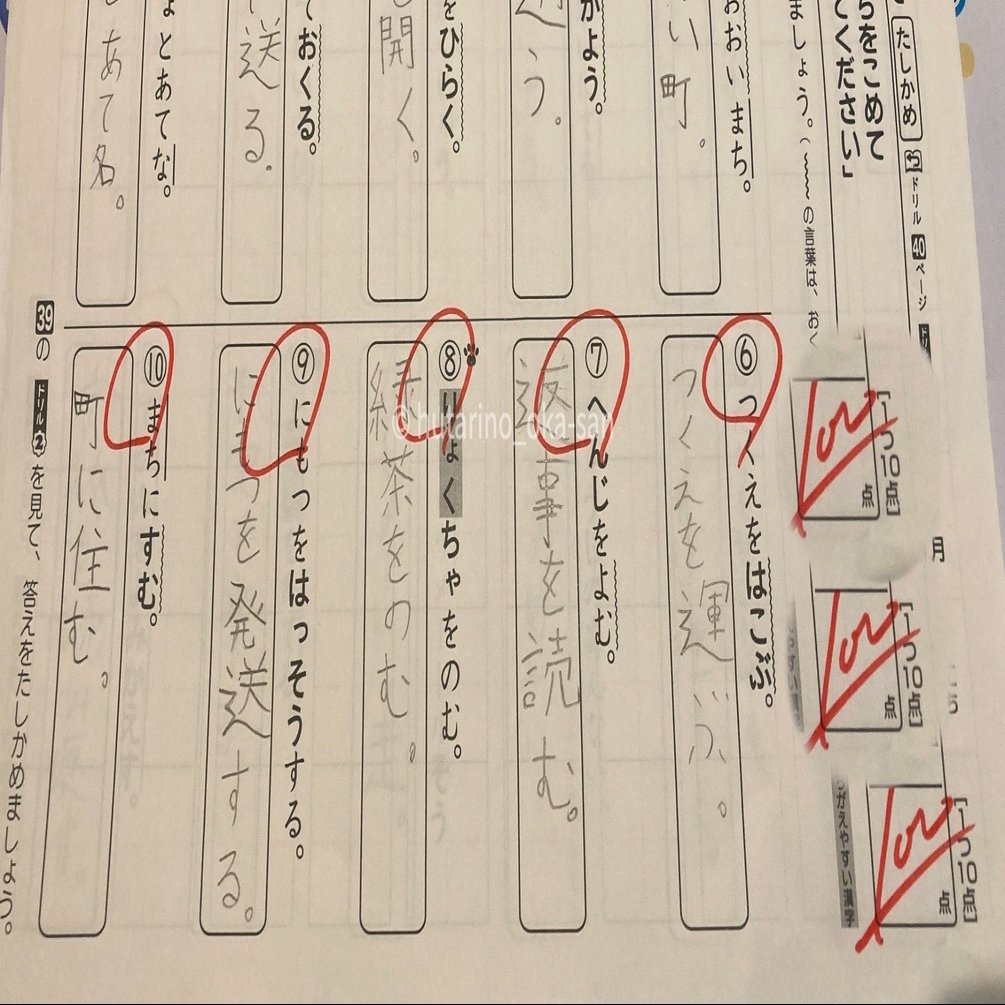 たしかめ
ドリル 40 ページ
らをこめて
てください」
ましょう。(〰の言葉は、おく
おおいまち。
い町。
がよう。
う。
をひらく。
開く。
ておくる。
送る。
とあてな。
あて名。
月
[1つ10点]
点
[1つ10点]
点
ちがえやすい漢字
[1つ10点]
点
⑥ つくえをはこぶ。
つくえを運ぶ。
⑦ へんじをよむ。
返事を読む。
⑧ りょくちゃをのむ。
緑茶をのむ。
⑨ にもつをはっそうする。
にもつを発送する。
⑩ まちにすむ。
町に住む。
39の ドリル② を見て、答えをたしかめましょう。
© hutarino_oka-san